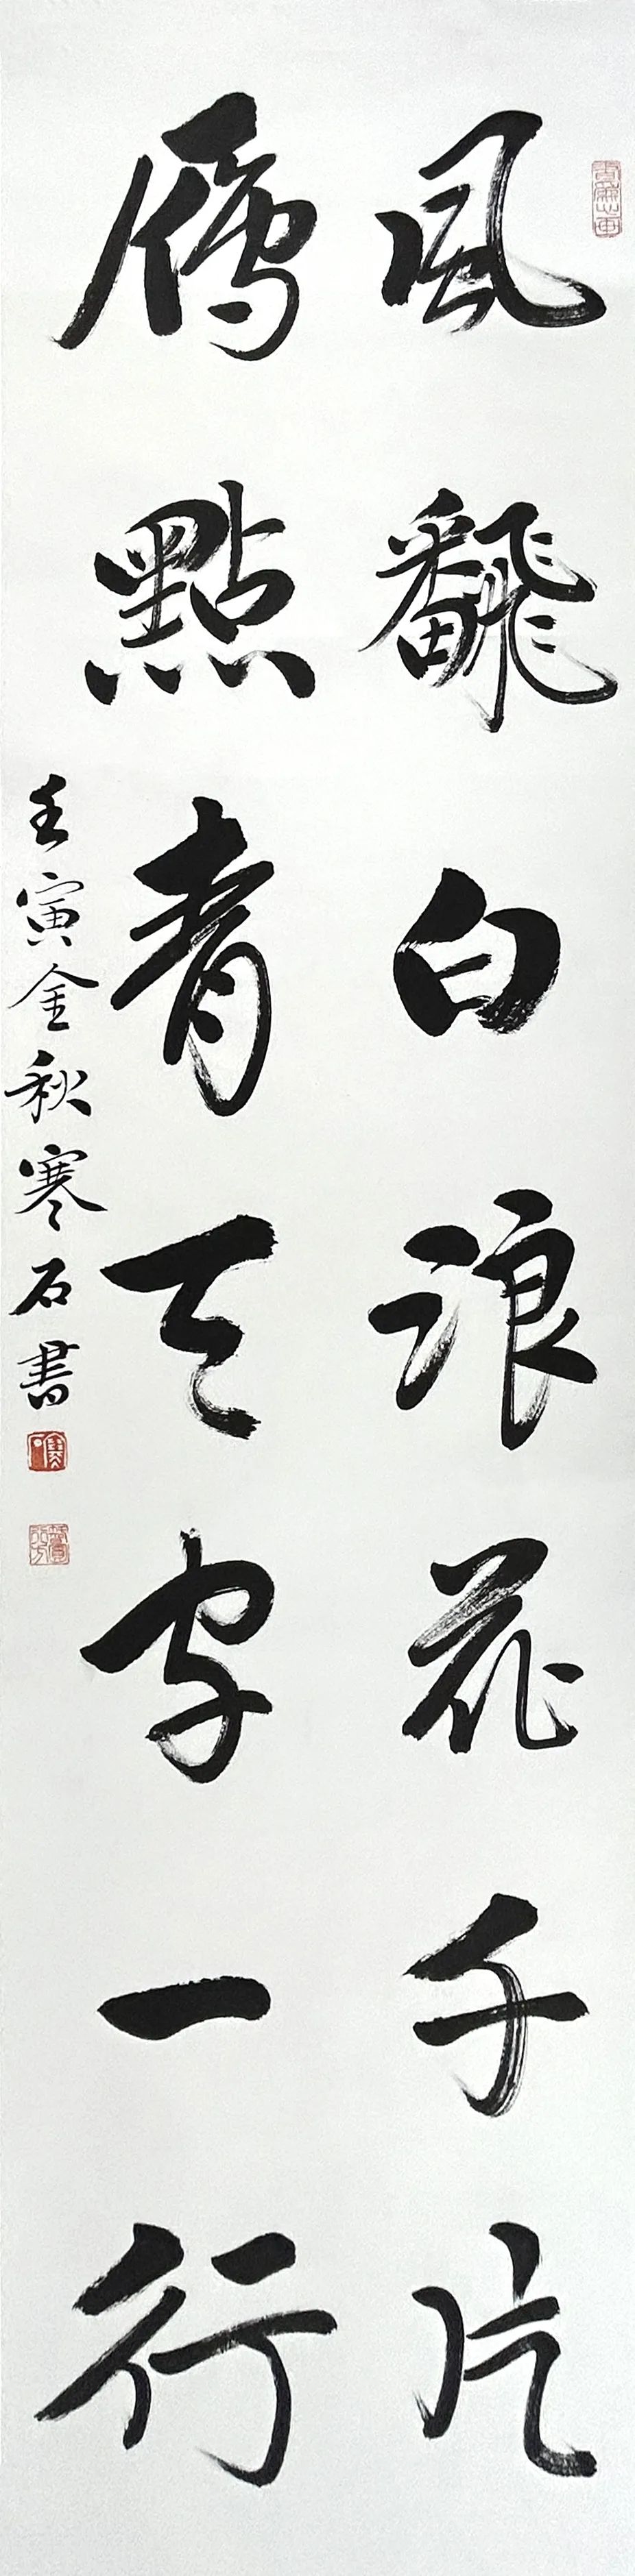 風飜白浪花千片
雁點青天字一行
壬寅金秋寒石書